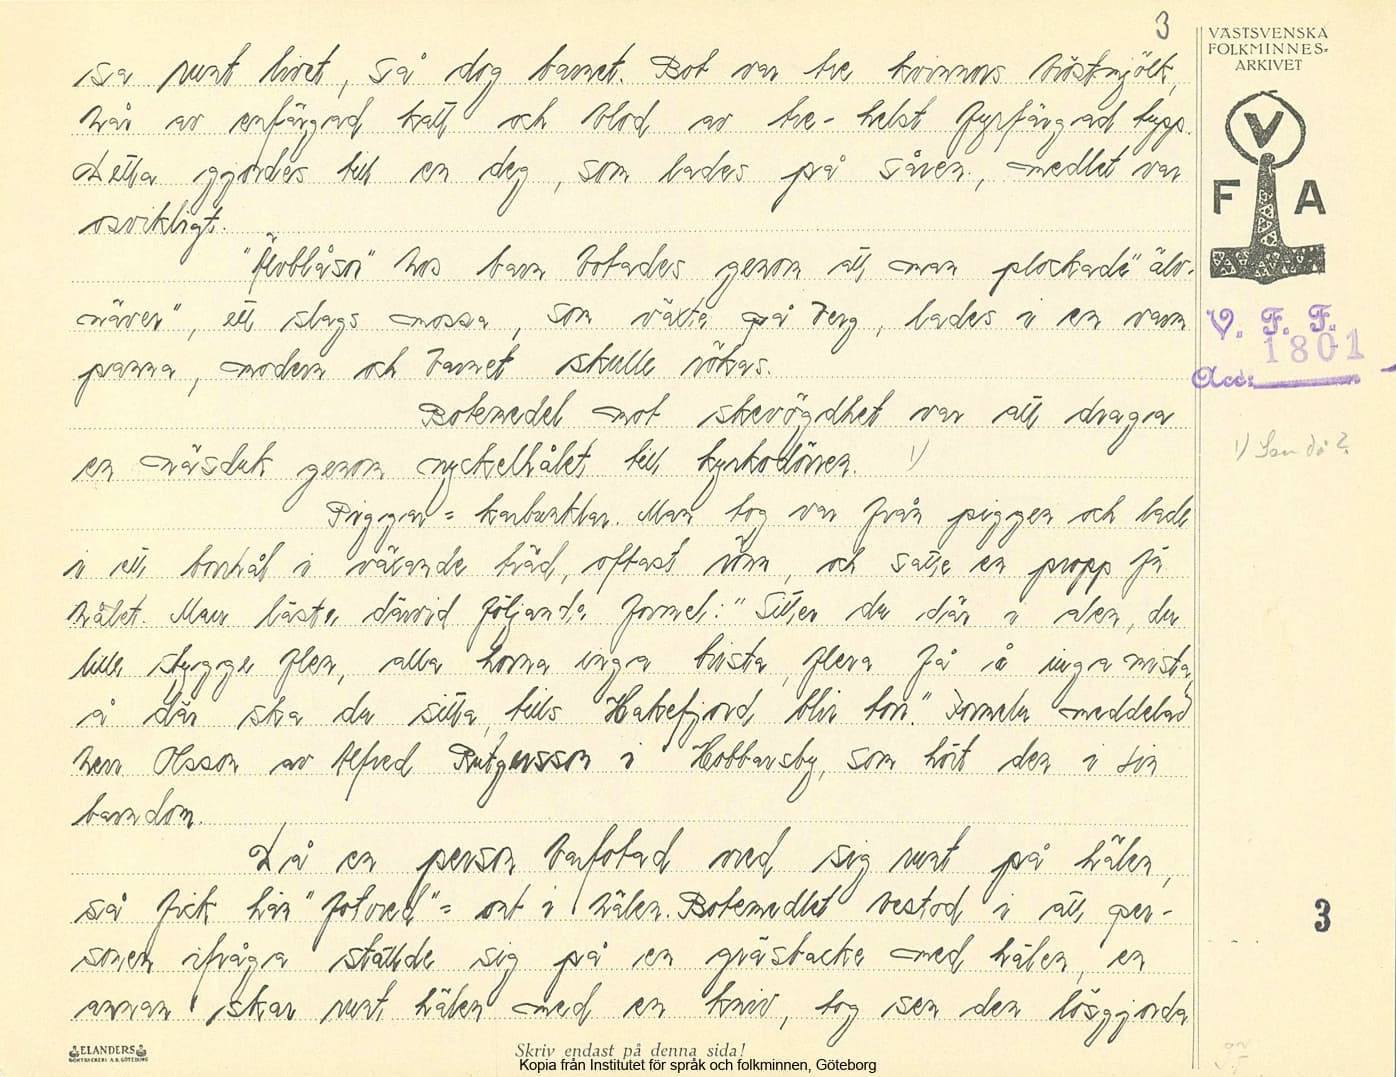 3
VÄSTSVENSKA
FOLKMINNES-
ARKIVET
V
F A
V. F. F.
1801
Acc:
sa runt livet, så dog barnet. Bot var tre kvinnors bröstmjölk,
hår av enfärgad katt och blod av tre- helst fyrfärgad tupp.
Detta gjordes till en deg, som lades på såren, medlet var
osvikligt.
"Älvblåson" hos barn botades genom att man plockade "älv-
näver", ett slags mossa, som växte på berg, lades i en varm
panna, modern och barnet skulle rökas.
Botemedel mot skevögdhet var att draga
en näsduk genom nyckelhålet till kyrkodörren. 1)
1) Lam då?
Piggar = karbunklar. Man tog var från piggen och lade
i ett borrhål i växande träd, oftast rönn, och satte en propp för
hålet. Man läste därvid följande formel: "Sitter du där i alen, du
lille stygge flen, alla horna inga brista, flera få å inga mista,
å där ska du sitta, tills Hakefjord blir torr." Formeln meddelad
herr Olsson av Alfred Rutgersson i Hobbarsby, som hört den i sin
barndom.
Då en person barfotad vred sig runt på hälen,
så fick han "fotvred" = ont i hälen. Botemedlet bestod i att per-
sonen ifråga ställde sig på en gräsbacke med hälen, en
annan skar runt hälen med en kniv, tog sen den lösgjorda
3
ELANDERS
BOKTRYCKERI A.B. GÖTEBORG
Skriv endast på denna sida!
Kopia från Institutet för språk och folkminnen, Göteborg